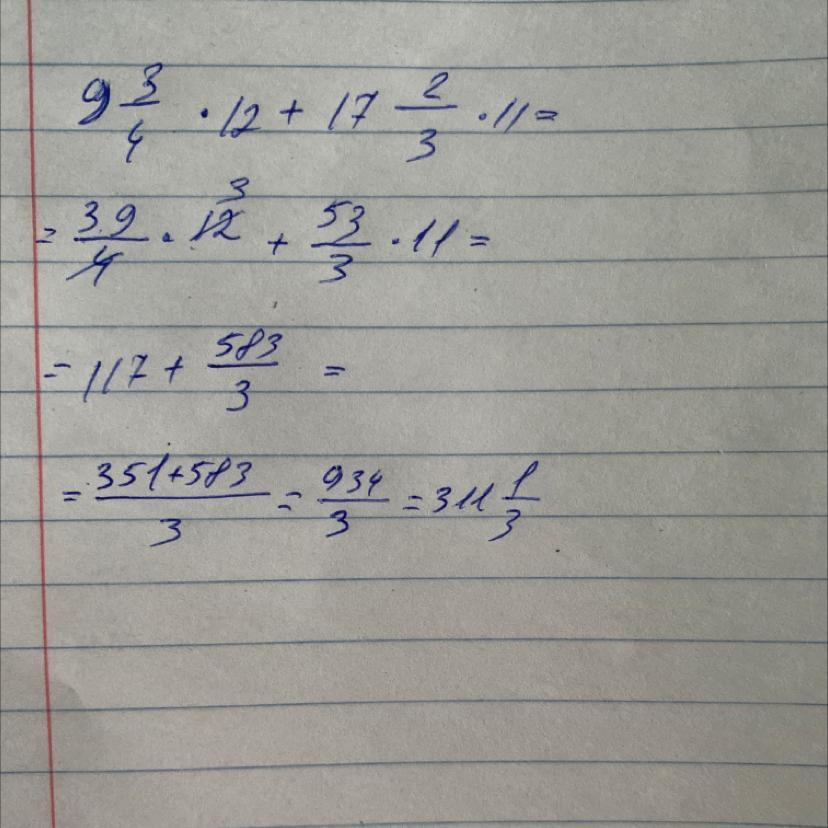 9 3/4 · 12 + 17 2/3 · 11 =
= 39/4 · 12 3 + 53/3 · 11 =
= 117 + 583/3 =
= 351+583/3 = 934/3 = 311 1/3